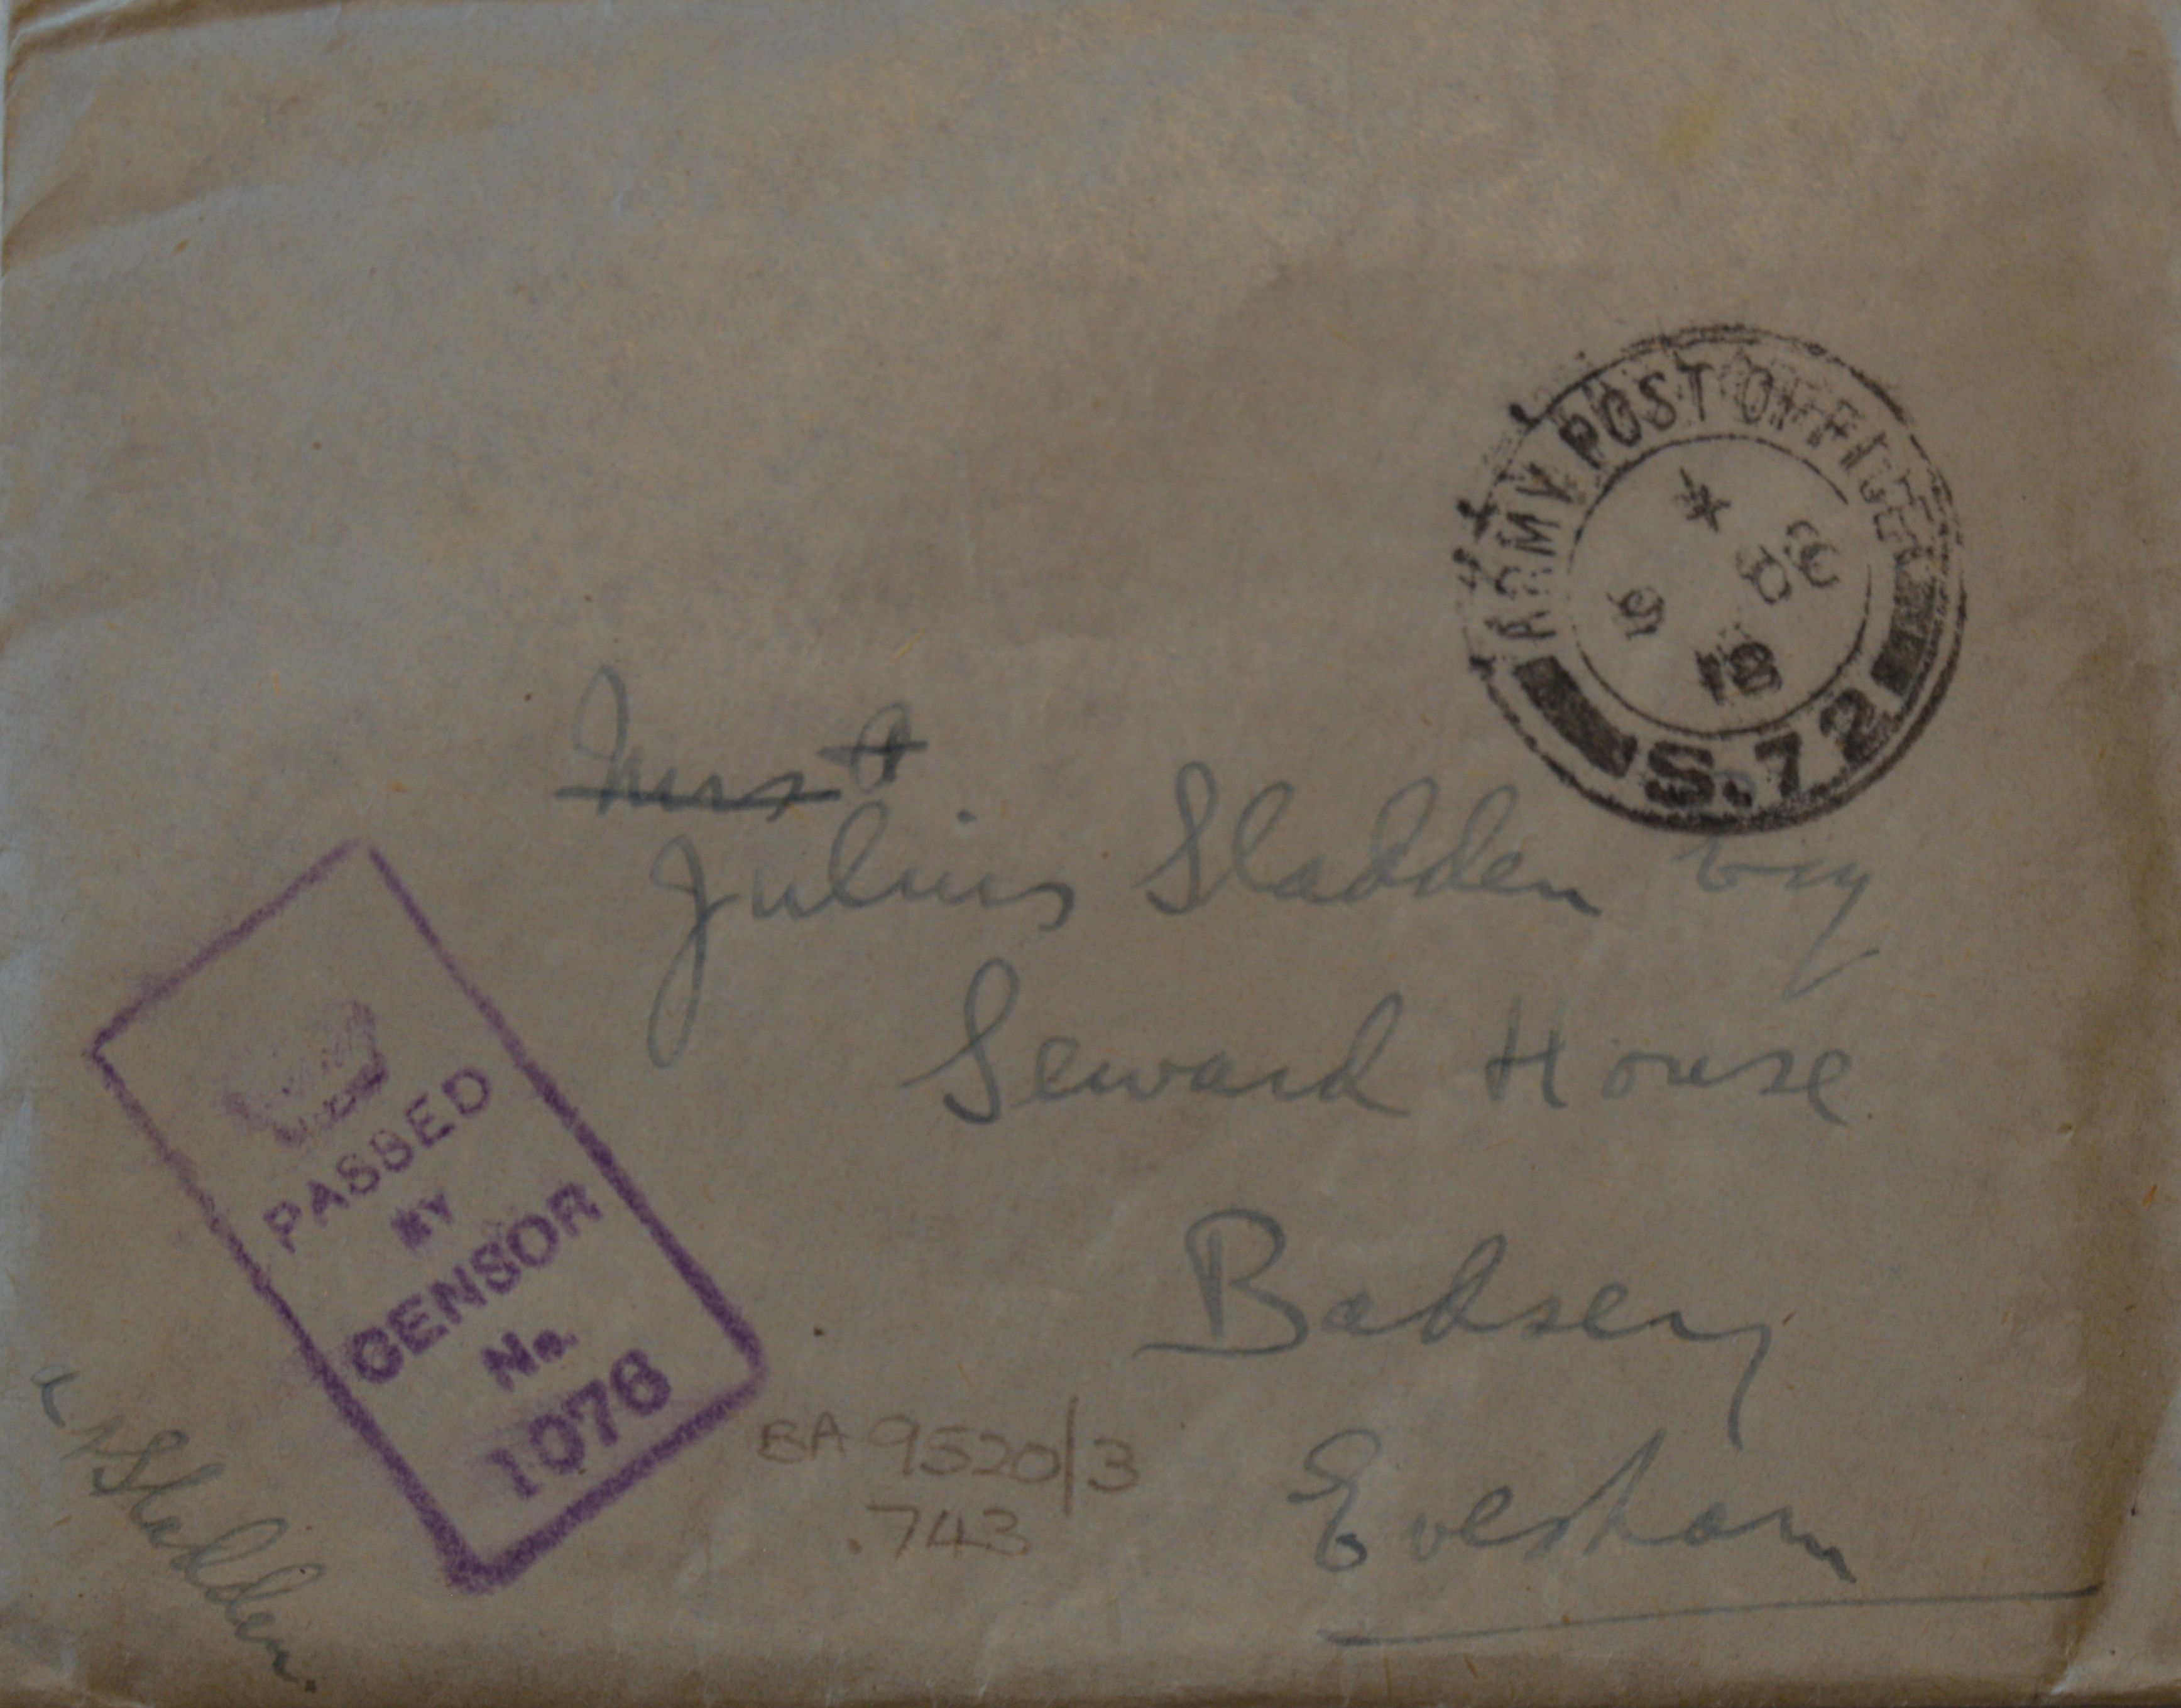 ARMY POST OFFICE
*
DE
18
S.72
Mrs
Julius Sladden Esq
Seward House
Badsey
Evesham
PASSED
BY
CENSOR
No.
1076
Sladden.
BA 9520/3
.743